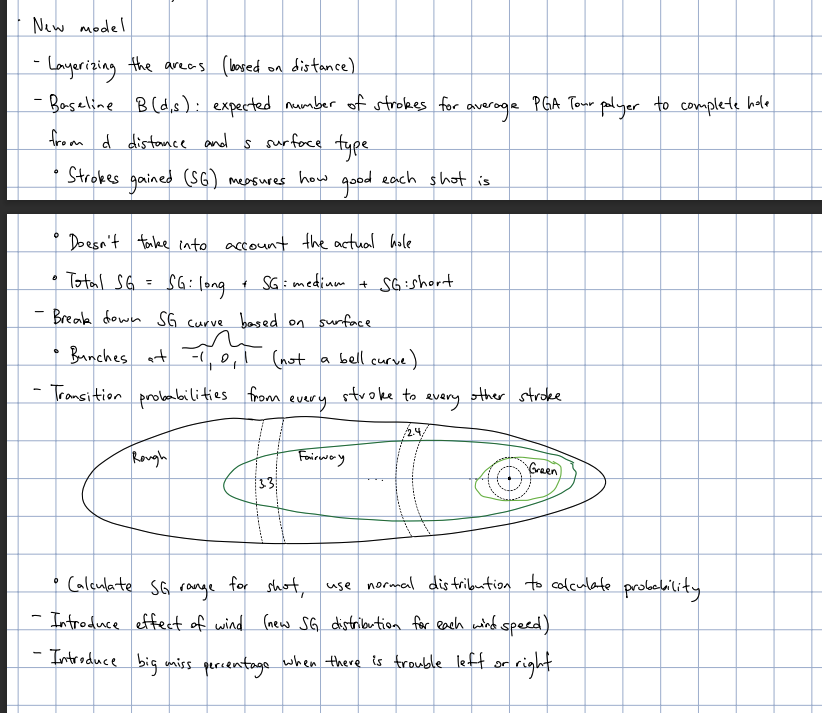 New model
- Layerizing the areas (based on distance)
- Baseline B(d,s): expected number of strokes for average PGA Tour polyer to complete hole
from d distance and s surface type
° Strokes gained (SG) measures how good each shot is
° Doesn't take into account the actual hole
° Total SG = SG:long + SG:medium + SG:short
- Break down SG curve based on surface
° Bunches at -1, 0, 1 (not a bell curve)
- Transition probabilities from every stroke to every other stroke
2.4
Rough Fairway Green
3.3 ...
° Calculate SG range for shot, use normal distribution to calculate probability
- Introduce effect of wind (new SG distribution for each wind speed)
- Introduce big miss percentage when there is trouble left or right